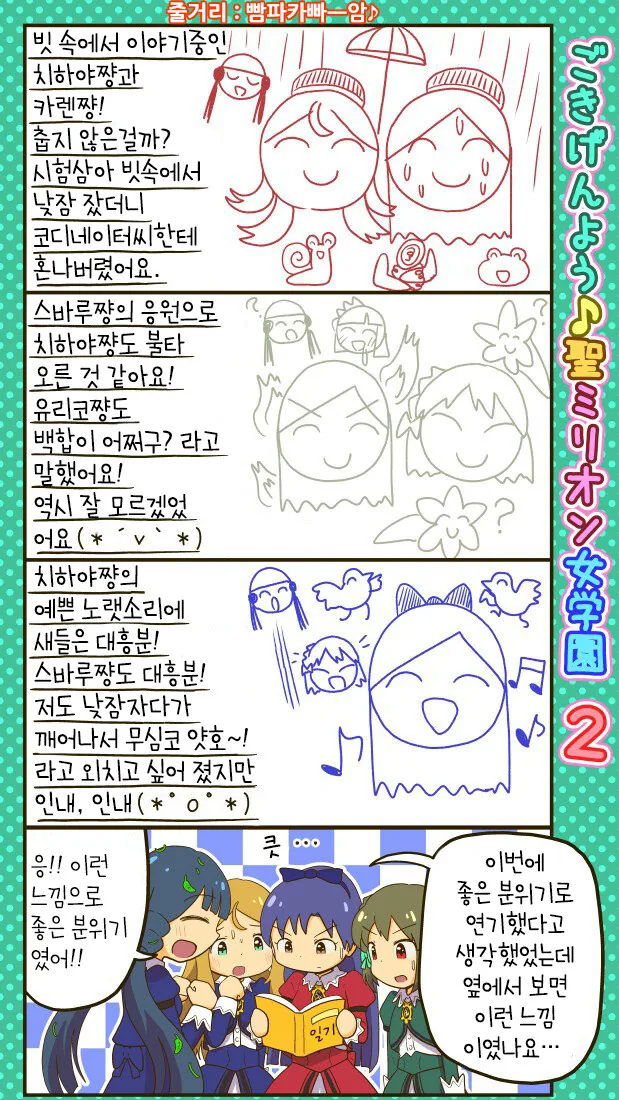 줄거리 : 빰파카빠—암♪
ごきげんよう♪聖ミリオン女学園 2
빗 속에서 이야기중인
치하야쨩과
카렌쨩!
춥지 않은걸까?
시험삼아 빗속에서
낮잠 잤더니
코디네이터씨한테
혼나버렸어요.
?
스바루쨩의 응원으로
치하야쨩도 불타
오른 것 같아요!
유리코쨩도
백합이 어쩌구? 라고
말했어요!
역시 잘 모르겠었
어요(*´∨`*)
?
?
?
치하야쨩의
예쁜 노랫소리에
새들은 대흥분!
스바루쨩도 대흥분!
저도 낮잠자다가
깨어나서 무심코 얏호~!
라고 외치고 싶어 졌지만
인내, 인내(*°o°*)
이번에
좋은 분위기로
연기했다고
생각했었는데
옆에서 보면
이런 느낌
이였나요…
큿 …
응!! 이런
느낌으로
좋은 분위기
였어!!
일기